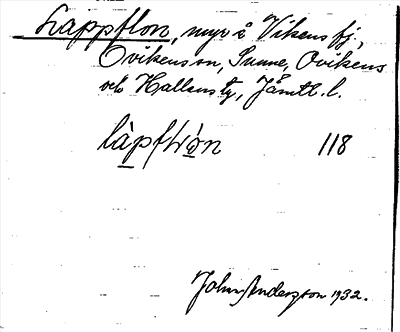 Lappflon, myr å Vikens fj.,
Ovikens sn, Sunne, Ovikens
och Hallens tg, Jämtl. l.
làpfɫòn 118
John Anderzon 1932.